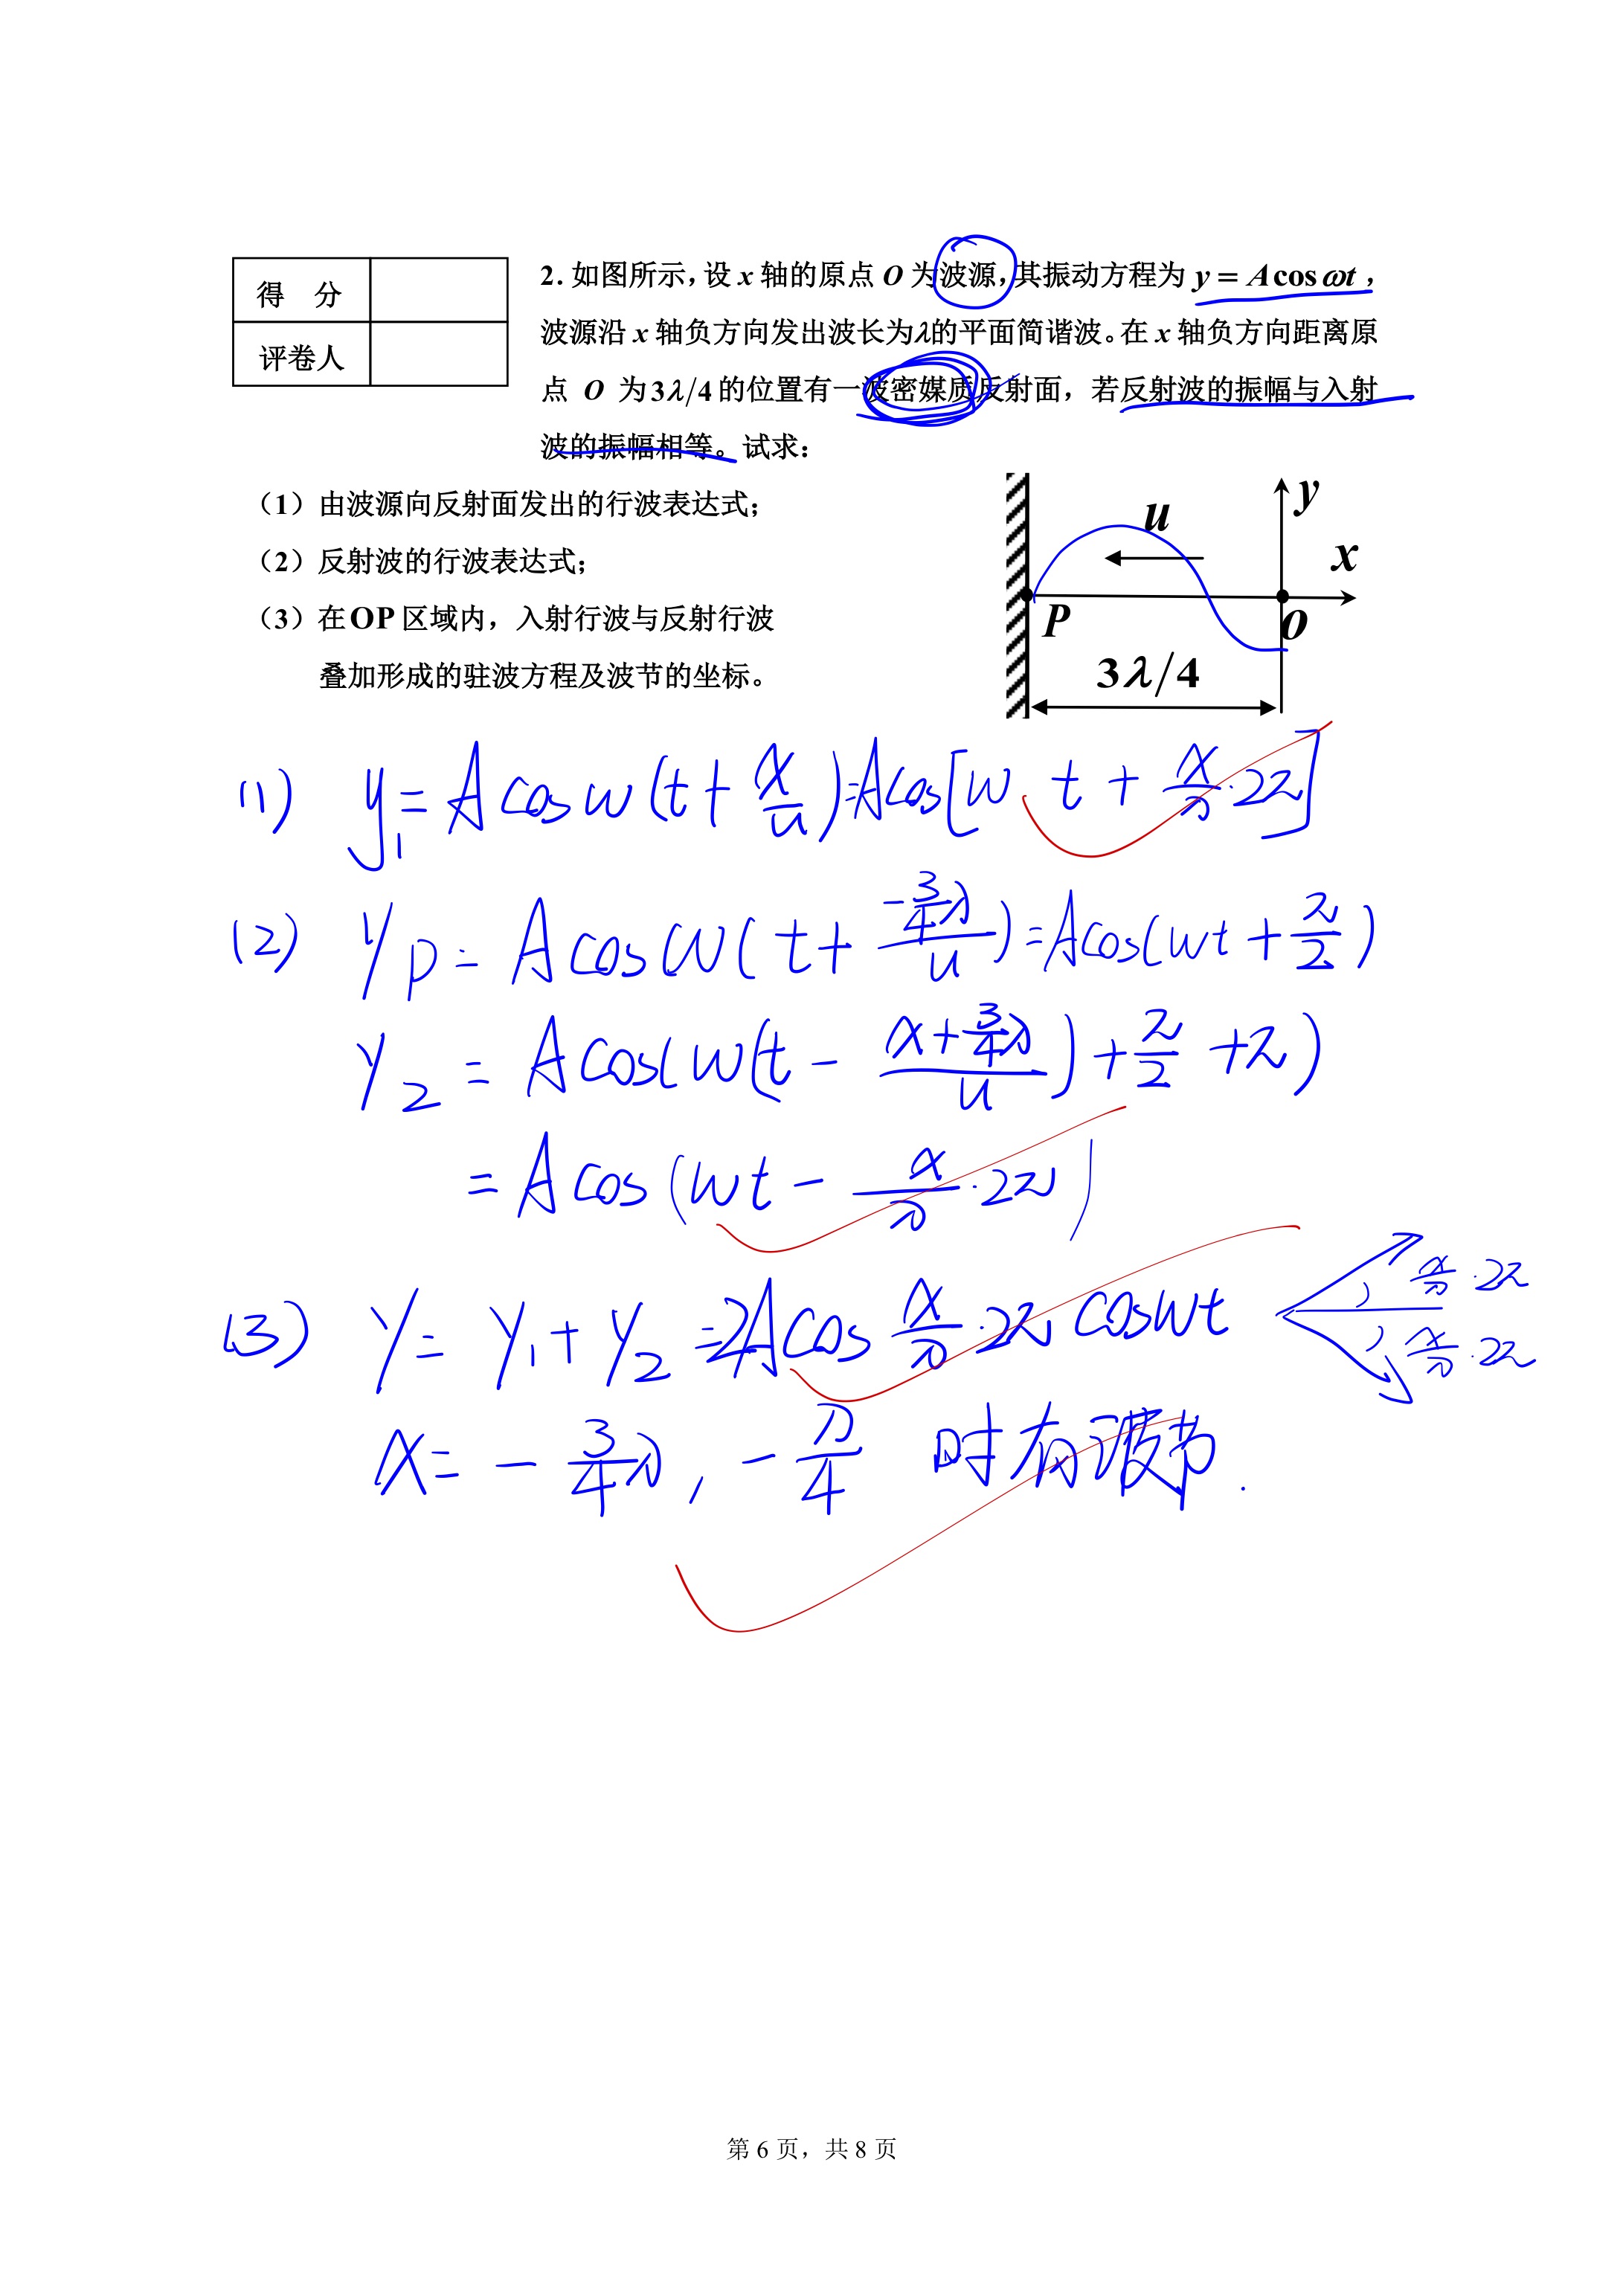 得 分
评卷人
2. 如图所示,设 x 轴的原点 O 为波源,其振动方程为 y = A cos ωt ,
波源沿 x 轴负方向发出波长为λ的平面简谐波。在 x 轴负方向距离原
点 O 为 3λ/4 的位置有一波密媒质反射面，若反射波的振幅与入射
波的振幅相等。试求:
（1）由波源向反射面发出的行波表达式；
（2）反射波的行波表达式；
（3）在 OP 区域内，入射行波与反射行波
叠加形成的驻波方程及波节的坐标。
y
u
x
P
O
3λ/4
(1) y₁ = A cos ω(t + x/u) = A cos[ω t + x/λ · 2π]
(2) y_P = A cos ω(t + (-3/4 λ)/u) = A cos(ωt + π/2)
y₂ = A cos(ω(t - (x + 3/4 λ)/u) + π/2 + π)
= A cos(ωt - x/λ · 2π)
(3) y = y₁ + y₂ = 2A cos x/λ · 2π cos ωt
x/λ · 2π
x/λ · 2π
x = - 3/4 λ , - λ/4 时有波节.
第 6 页，共 8 页